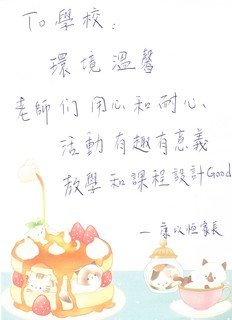 To 學校：
環境溫馨
老師们用心和耐心、
活動有趣有意義
教學和課程設計Good
一 康以恒家長